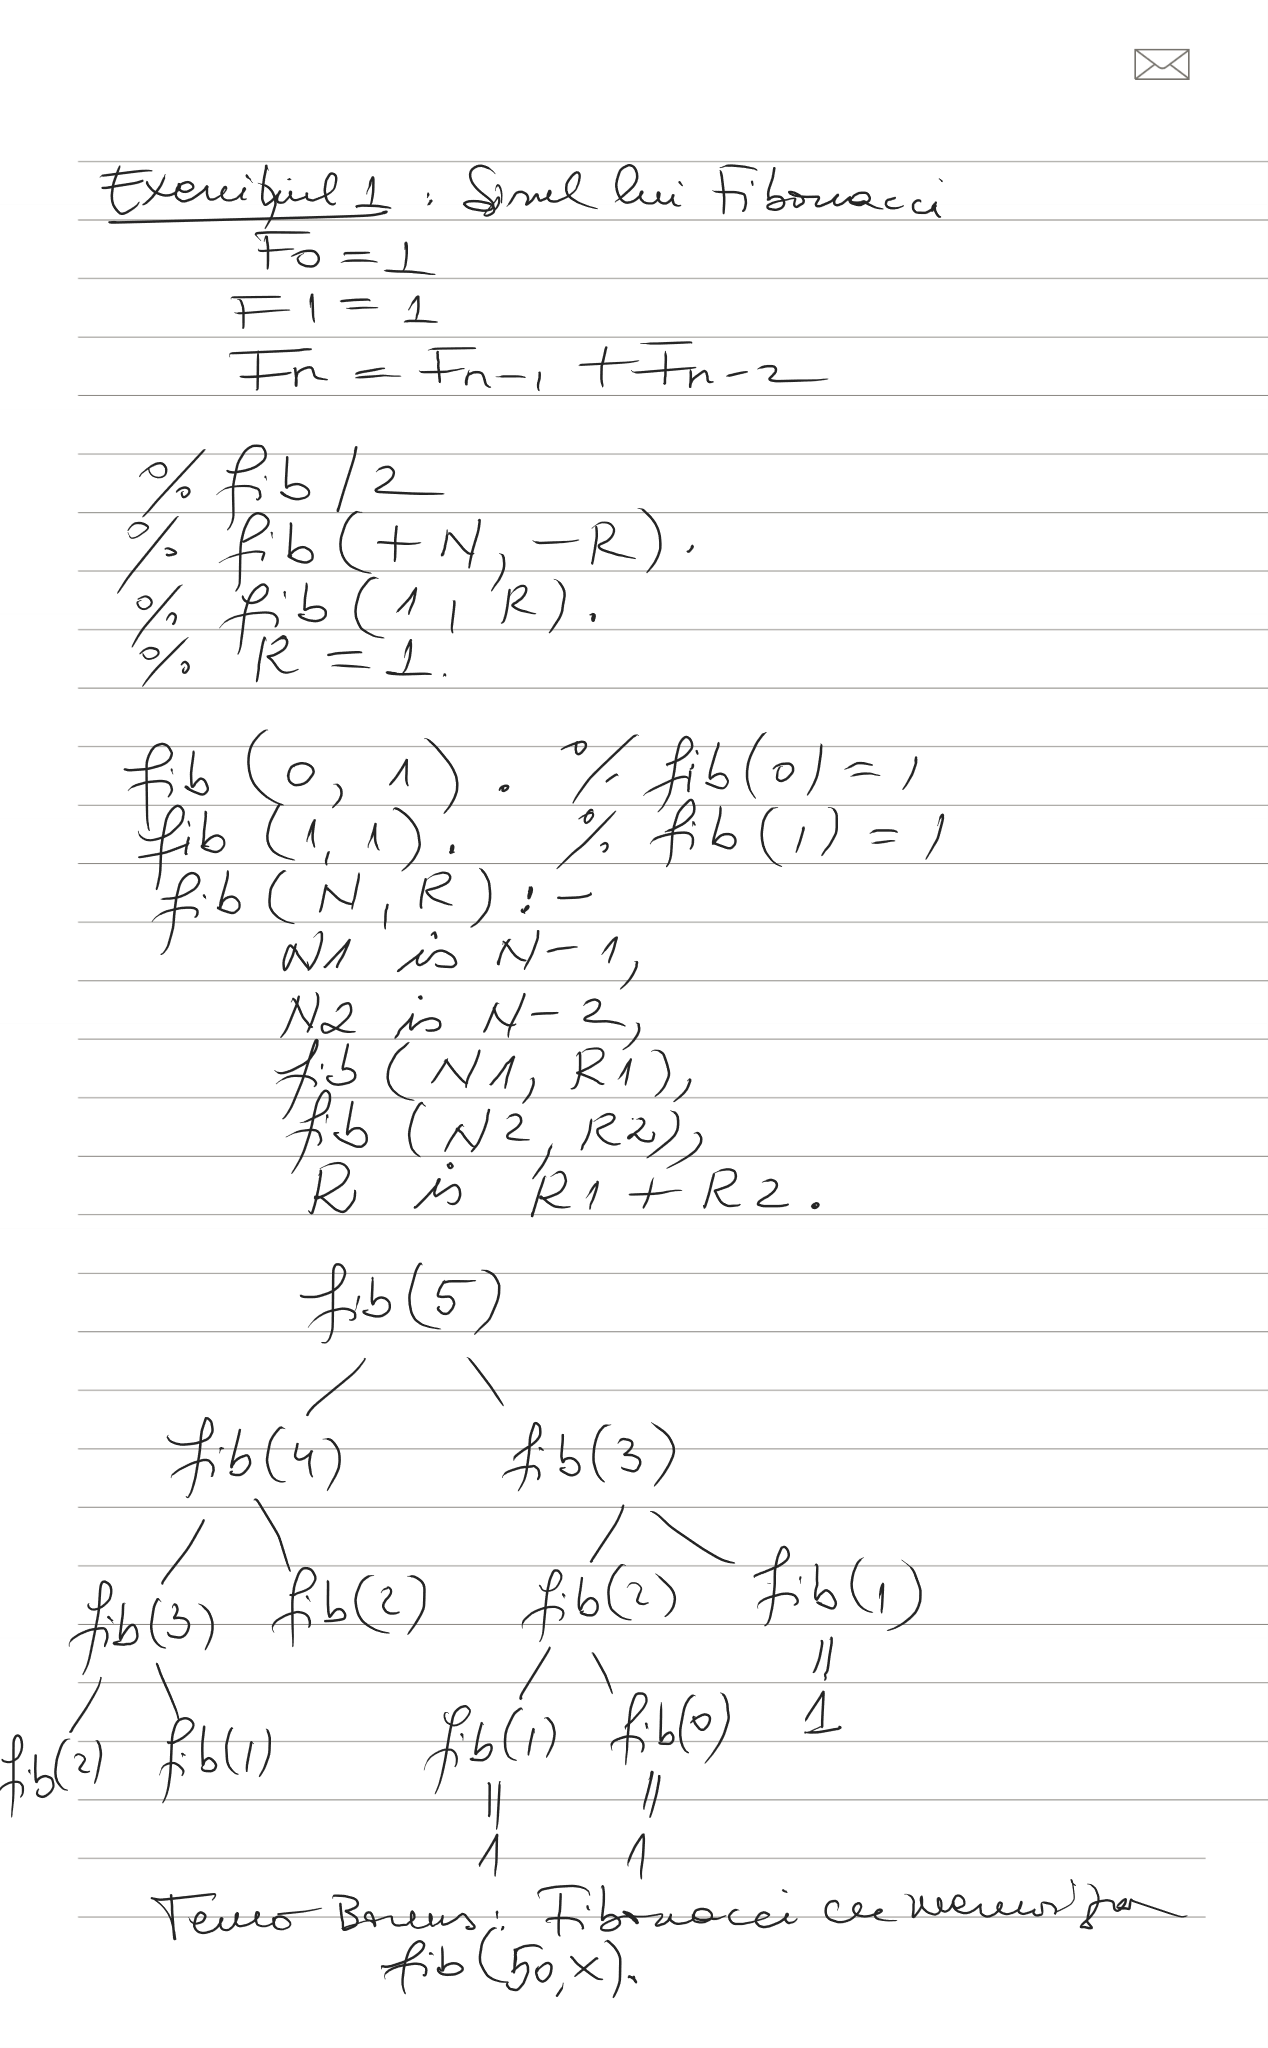 Exercițiul 1 : Șirul lui Fibonacci
F0 = 1
F1 = 1
Fn = Fn-1 + Fn-2
% fib /2
% fib (+N, -R).
% fib (1, R).
% R = 1.
fib (0, 1). % fib(0) = 1
fib (1, 1). % fib (1) = 1
fib (N, R) :-
N1 is N-1,
N2 is N-2,
fib (N1, R1),
fib (N2, R2),
R is R1 + R2.
fib(5)
fib(4) fib(3)
fib(3) fib(2) fib(2) fib(1)
fib(2) fib(1) fib(1) fib(0) 1
1 1
Tema Bonus: Fibonacci cu memoizare
fib(50,X).